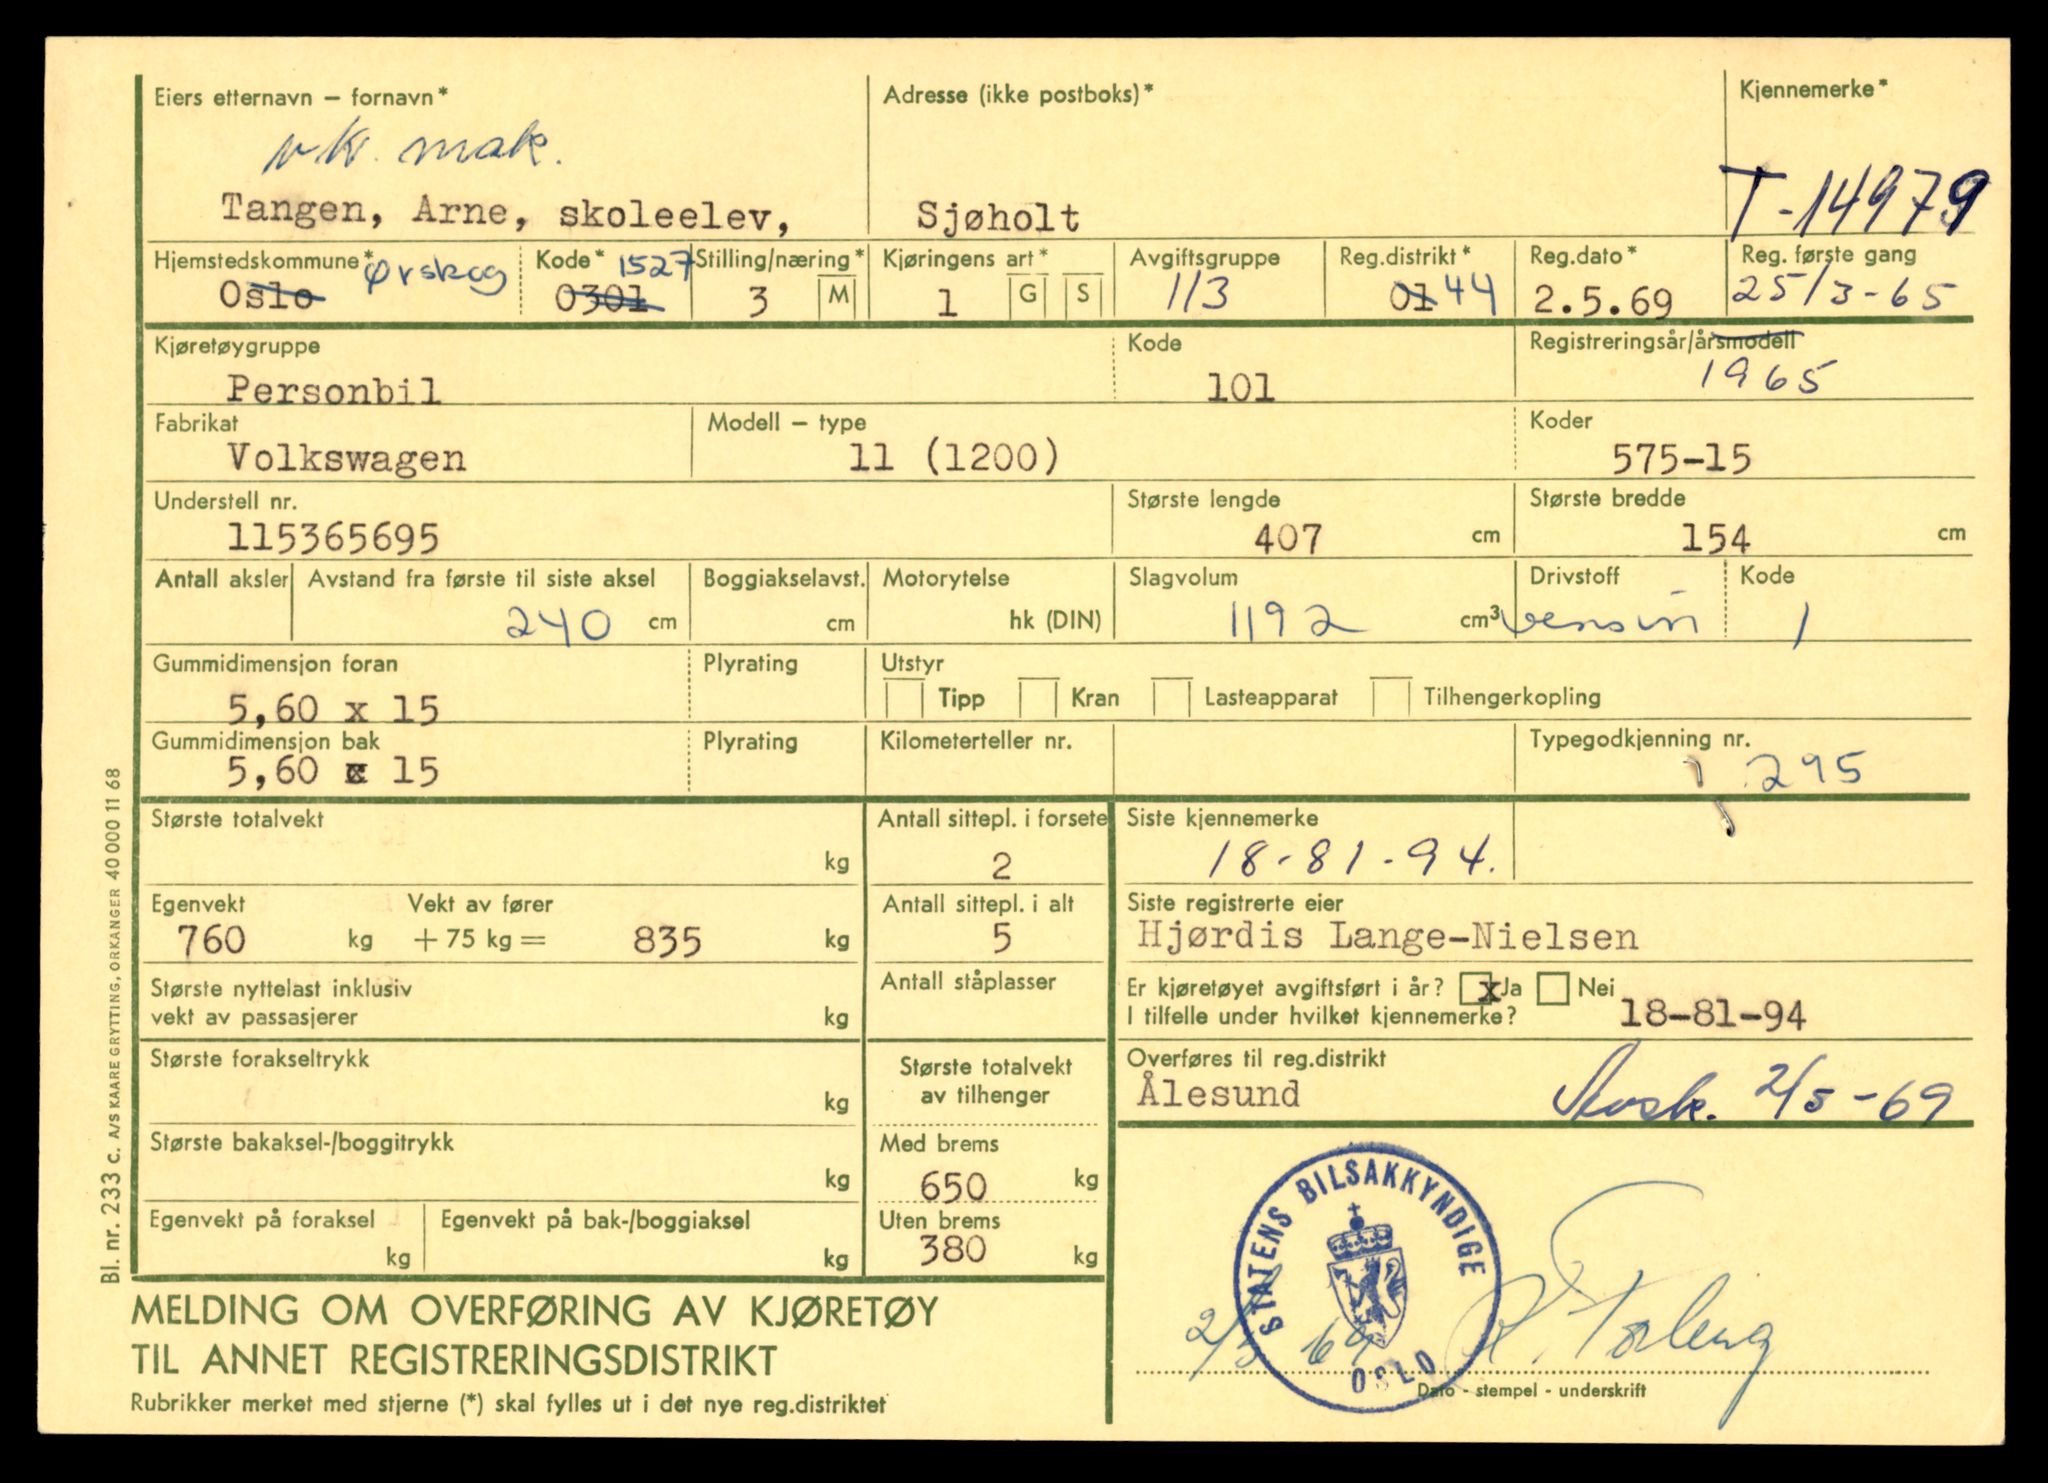 Eiers etternavn – fornavn* Adresse (ikke postboks)* Kjennemerke*
vk. mak.
Tangen, Arne, skoleelev, Sjøholt T-14979
Hjemstedskommune* Ørskog Kode* 1527 Stilling/næring* Kjøringens art* Avgiftsgruppe Reg.distrikt* Reg.dato* Reg. første gang
Oslo 0301 3 M 1 G S 113 01 44 2.5.69 25/3-65
Kjøretøygruppe Kode Registreringsår/årsmodell
Personbil 101 1965
Fabrikat Modell – type Koder
Volkswagen 11 (1200) 575-15
Understell nr. Største lengde Største bredde
115365695 407 cm 154 cm
Antall aksler Avstand fra første til siste aksel Boggiakselavst. Motorytelse Slagvolum Drivstoff Kode
240 cm cm hk (DIN) 1192 cm³ bensin 1
Gummidimensjon foran Plyrating Utstyr
5,60 x 15 Tipp Kran Lasteapparat Tilhengerkopling
Gummidimensjon bak Plyrating Kilometerteller nr. Typegodkjenning nr.
5,60 x 15 295
Største totalvekt Antall sittepl. i forsete Siste kjennemerke
kg 2 18-81-94.
Egenvekt Vekt av fører Antall sittepl. i alt Siste registrerte eier
760 kg + 75 kg = 835 kg 5 Hjørdis Lange-Nielsen
Største nyttelast inklusiv Antall ståplasser Er kjøretøyet avgiftsført i år? x Ja Nei
vekt av passasjerer kg I tilfelle under hvilket kjennemerke? 18-81-94
Største forakseltrykk Største totalvekt Overføres til reg.distrikt
kg av tilhenger Ålesund 2/5-69
Største bakaksel-/boggitrykk Med brems
kg 650 kg
Egenvekt på foraksel Egenvekt på bak-/boggiaksel Uten brems
kg kg 380 kg
STATENS BILSAKKYNDIGE
OSLO
2/5 69
Dato - stempel - underskrift
MELDING OM OVERFØRING AV KJØRETØY
TIL ANNET REGISTRERINGSDISTRIKT
Rubrikker merket med stjerne (*) skal fylles ut i det nye reg.distriktet
Bl. nr. 233 c. A/S KAARE GRYTTING, ORKANGER 40 000 11 68